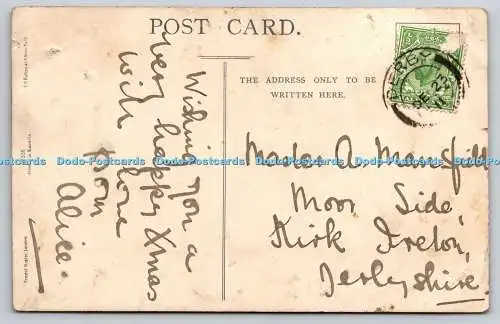 POST CARD.
THE ADDRESS ONLY TO BE
WRITTEN HERE.
DERBY
Wishing you a
very happy Xmas
with love
from
Alice.
Master A. Mansfield
Moor Side,
Kirk Ireton,
Derbyshire.
Dodo-Postcards Dodo-Postcards Dodo-Postcards Dodo-Postcards Dodo-Postcards Dodo-Postcards